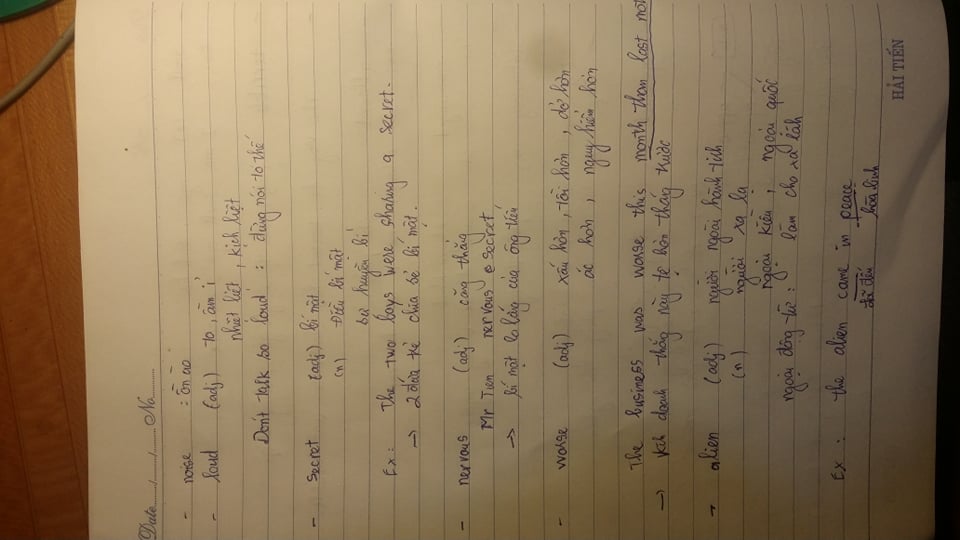 Date...../...../..... No..........
- noise : ồn ào
- loud (adj) to, ầm ĩ
nhiệt liệt, kịch liệt
Don't talk so loud : đừng nói to thế
- secret (adj) bí mật
(n) Điều bí mật
sự huyền bí
Ex: The two boys were sharing a secret.
→ 2 đứa trẻ chia sẻ bí mật.
- nervous (adj) căng thẳng
Mr Tien nervous secret
→ bí mật lo lắng của ông tiến
- worse (adj) xấu hơn, tồi hơn, dở hơn
ác hơn, nguy hiểm hơn
The business was worse this month than last
→ kinh doanh tháng này tệ hơn tháng trước
→ alien (adj) người ngoài hành tinh
(n) người xa lạ
ngoại kiều, ngoại quốc
ngoại động từ : làm cho xa lánh
Ex : the alien came in peace
đã đến hòa bình
HẢI TIẾN